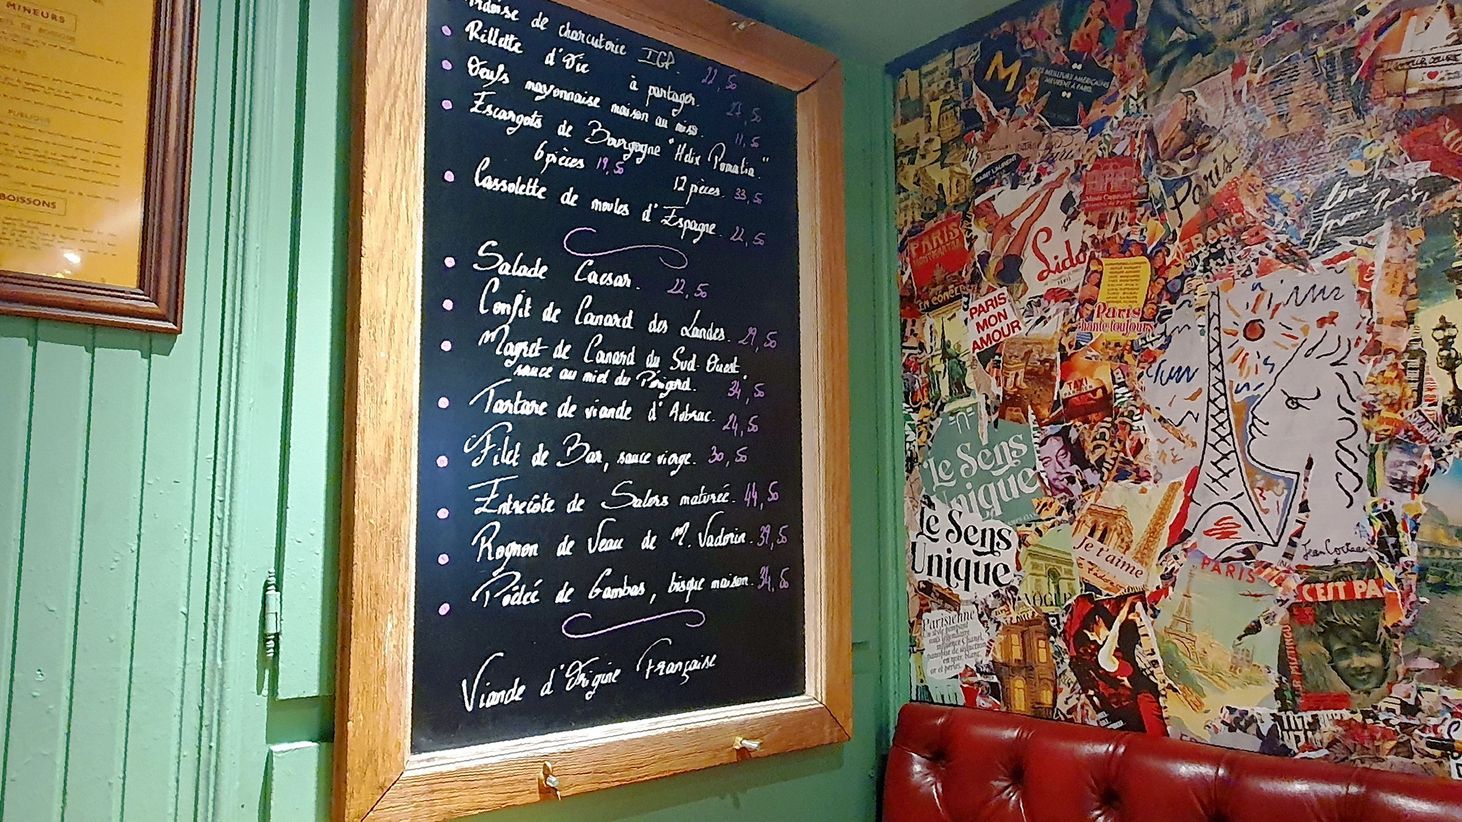 MINEURS
BOISSONS
de charcuterie IGP. 22,50
Rillette d'Oie à partager. 27,50
Oeufs mayonnaise maison au miso. 11,50
Escargots de Bourgogne "Helix Pomatia."
6 pièces 19,50 12 pièces 33,50
Cassolette de moules d'Espagne. 22,50
Salade Caesar. 22,50
Confit de Canard des Landes. 29,50
Magret de Canard du Sud Ouest
sauce au miel du Périgord. 34,50
Tartare de viande d'Aubrac. 24,50
Filet de Bar, sauce vierge. 30,50
Entrecôte de Salers maturée. 44,50
Rognon de Veau de M. Vadorin. 39,50
Poêlée de Gambas, bisque maison. 34,50
Viande d'Origine Française
M
LES MEILLEURS AMÉRICAINS
MEURENT À PARIS.
SAINT LAURENT
Paris
PARIS
Lido
FRANCE
EN CONCERT
PARIS
MON
AMOUR
Paris
chante toujours
TAXI
Le Sens
Unique
Le Sens
Unique
Je t'aime
VOGUE
Parisienne
PARIS
Jean Cocteau
C'EST PA